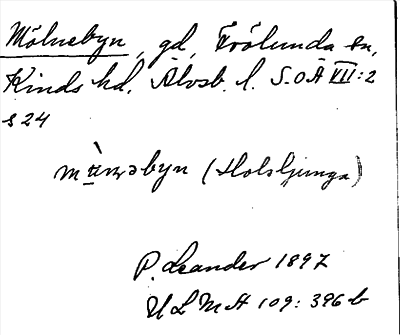 Mölnebyn, gd, Frölunda sn,
Kinds hd. Älvsb. l. S.o.Ä VII:2
s 24
byn (Holsljunga)
P. Leander 1897
ULMA 109: 396 b